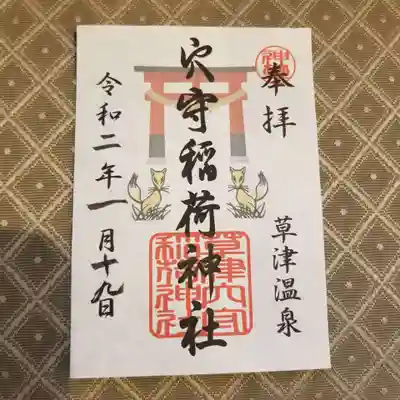 奉拝
草津温泉
穴守稲荷神社
草津穴守稲荷神社
令和二年一月十九日